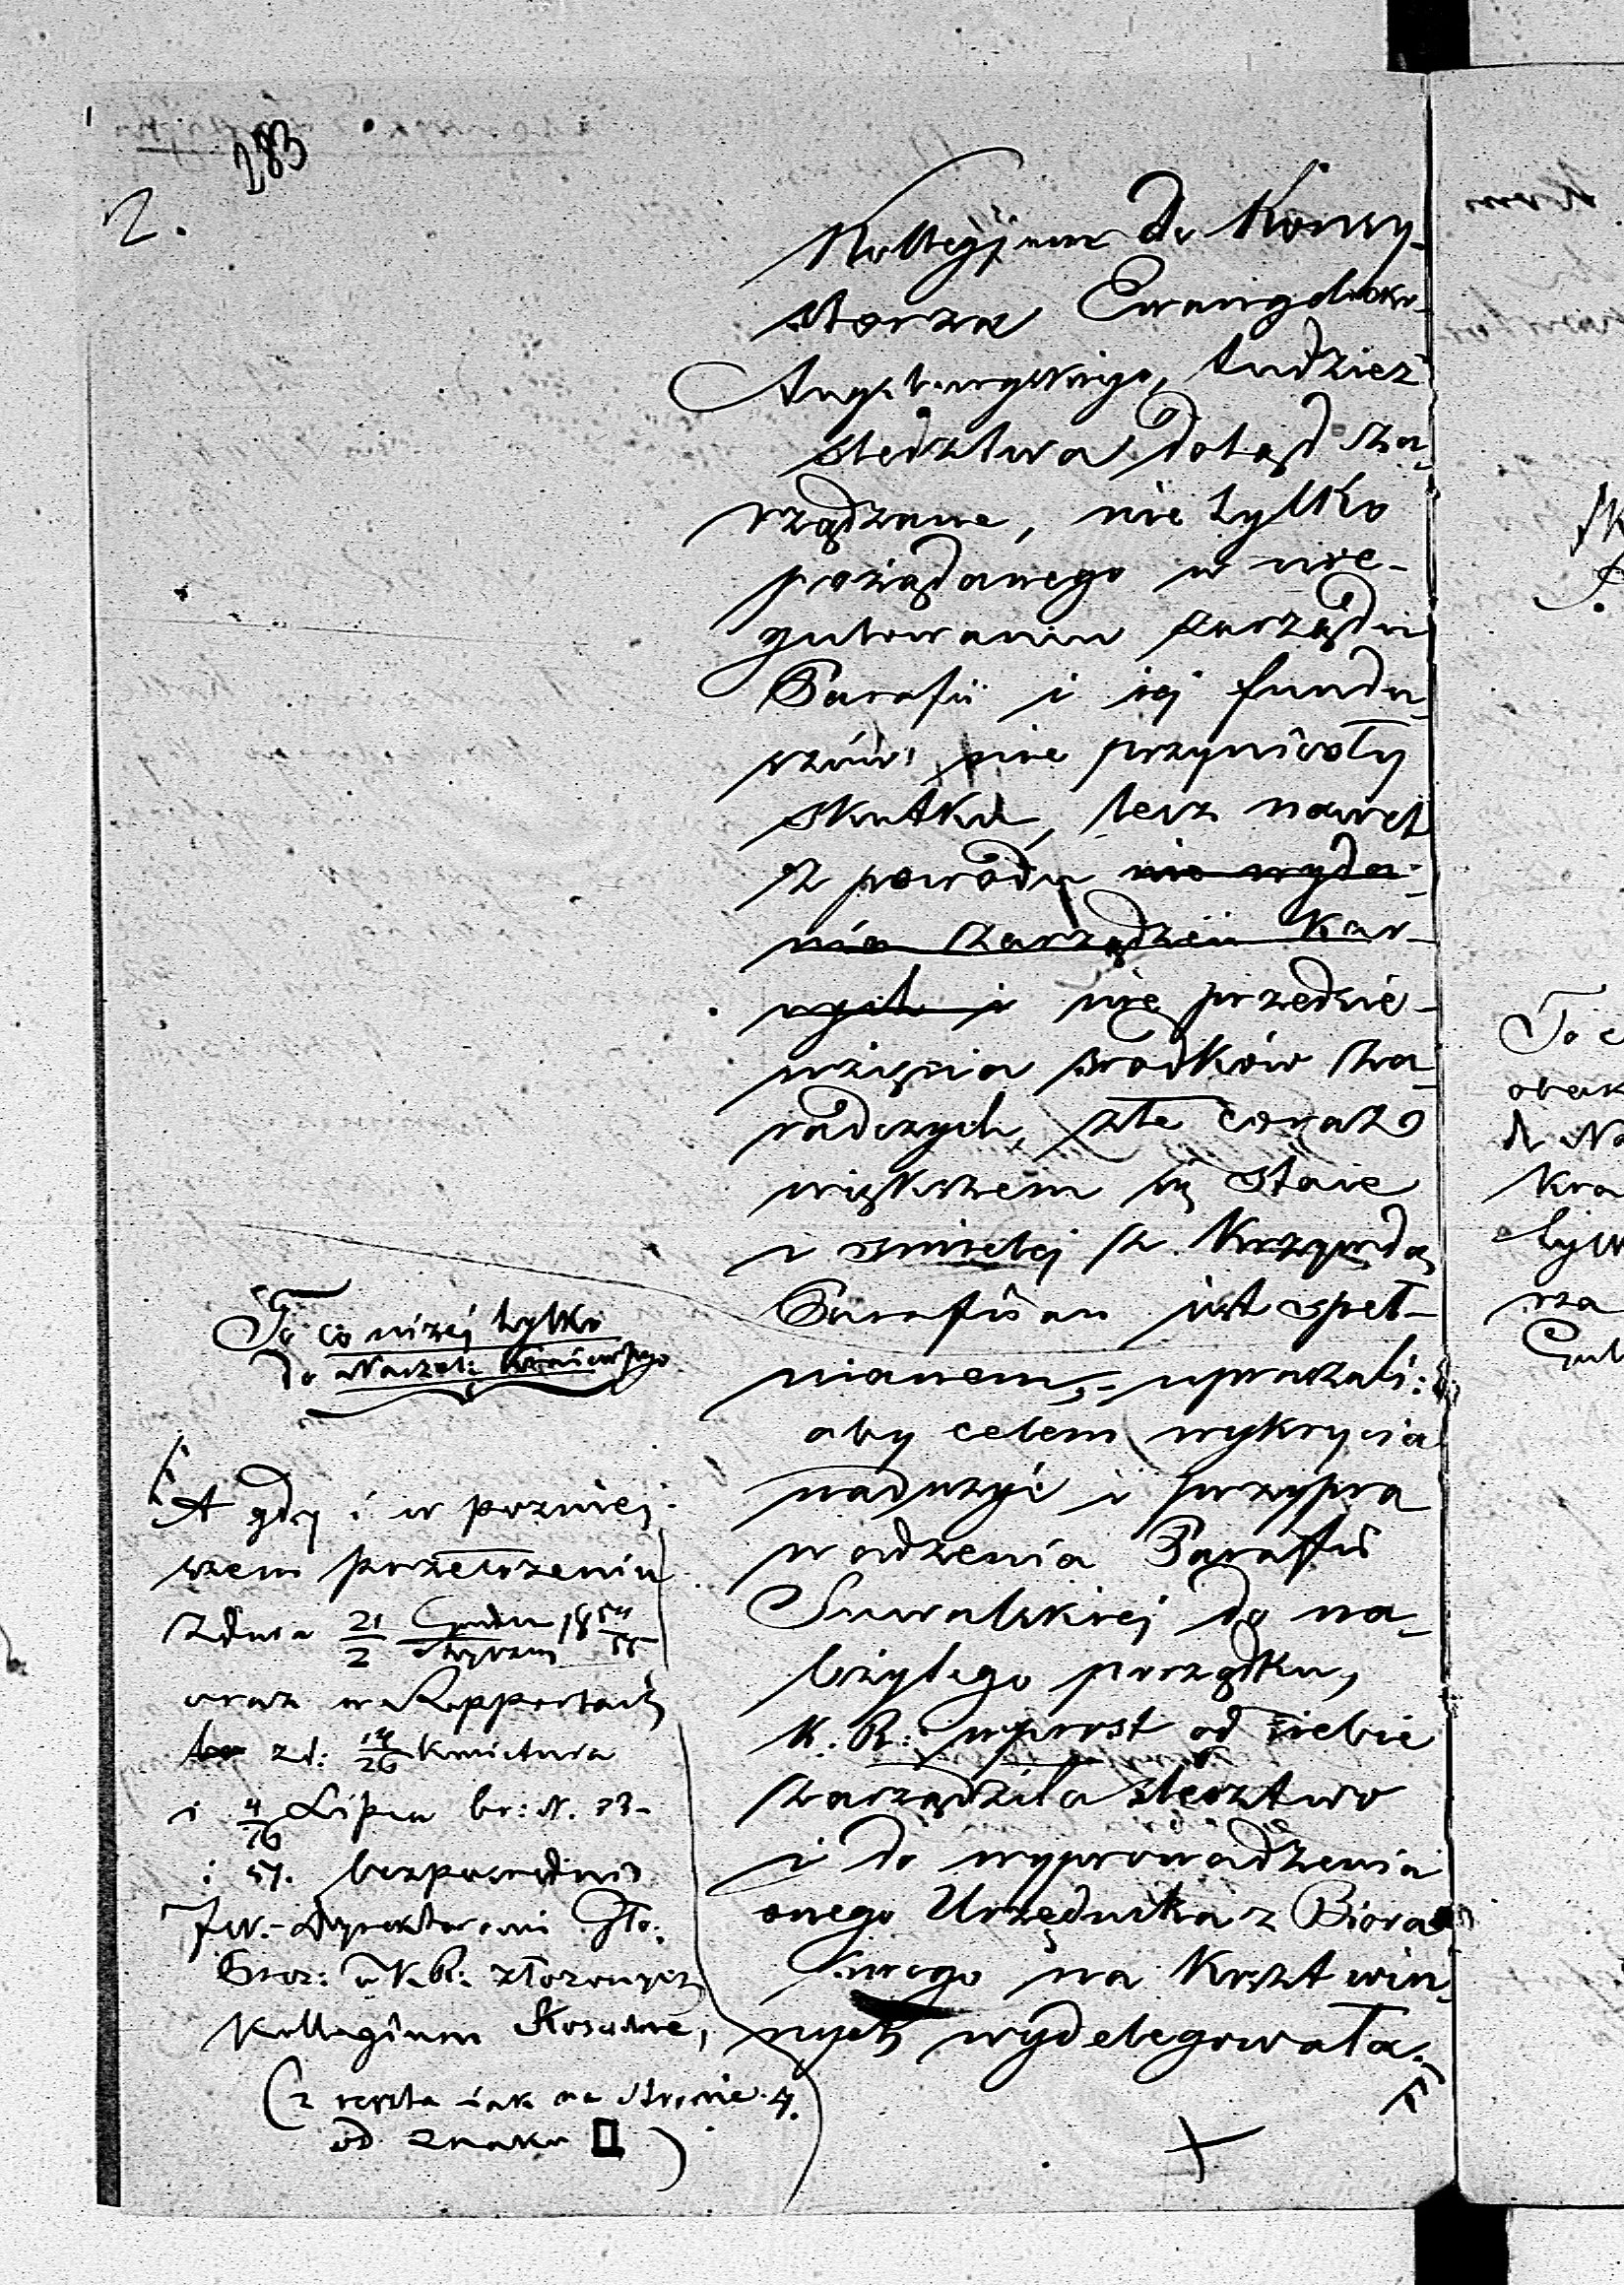 283
2.
Kollegjum do Konsy-
storza Ewangelicko
Augsburgskiego, tudzież
śledztwa dotąd za-
rządzane, nie tylko
pożądanego w ure-
gulowaniu zarządu
Parafii i jej fundu-
szów nie przyniosły
skutku, lecz nawet
z powodu nie wyda-
nia zarządzeń kar-
nych i nie przedsię-
wzięcia środków za-
radczych, złe coraz
większem się staie
i śmielej z krzywdą
Parafian jest speł-
nianem, upraszali:
aby celem wykrycia
nadużyć i przypro
wadzenia Parafii
Suwalskiej do na-
leżytego porządku,
K. R: wprost od siebie
zarządziła śledztwo
i do wyprowadzenia
onego Urzędnika z Biora
swego na koszt win-
nych wydelegowała.
To co niżej tylko
do Naczel:
A gdy i w pozniej-
szem przełożeniu
z dnia 21/2 Grudnia/Stycznia 18 54/55
oraz w Rapportach
z d: 14/26 Kwietnia
i 4/16 Lipca br: N. 23-
i 51. bezpośrednio
JW.- Dyrektorowi Gło:
Prez: w K.R: złożonych
Kollegium Kościelne,
(z resztą iak na stronie 4.
od znaku □)